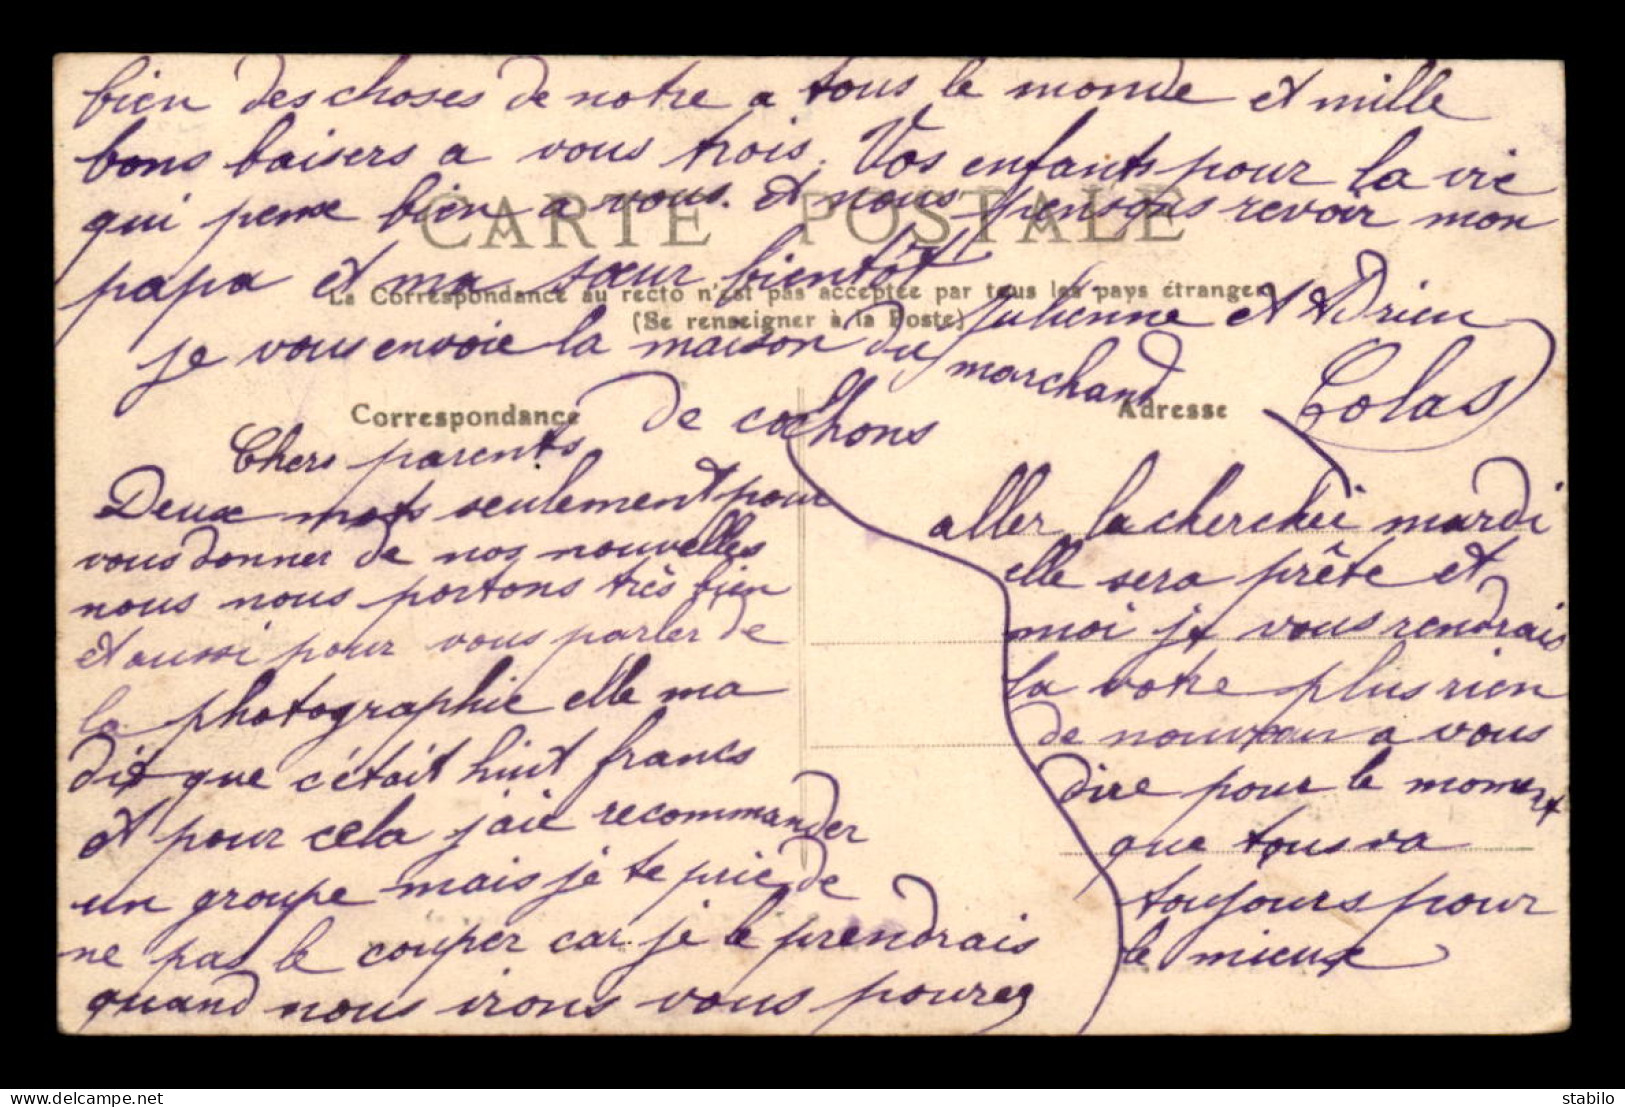 bien des choses de notre a tous le monde et mille
bons baisers a vous trois. Vos enfants pour la vie
qui pense bien a vous. et nous pensons revoir mon
papa et ma sœur bientôt
CARTE POSTALE
La Correspondance au recto n'est pas acceptée par tous les pays étrangers
(Se renseigner à la Poste)
Julienne et Adrien
Colas
je vous envoie la maison du marchand
de cochons
Correspondance
Adresse
Chers parents
Deux mots seulement pour
vous donner de nos nouvelles
nous nous portons très bien
et aussi pour vous parler de
la photographie elle ma
dit que c'était huit francs
et pour cela j'aie recommander
un groupe mais je te prie de
ne pas le couper car je le prendrais
quand nous irons vous pourez
aller la cherchéi mardi
elle sera prête et
moi je vous rendrais
la votre plus rien
de nouveau a vous
dire pour le moment
que tous va
toujours pour
le mieux
delcampe.net
stabilo